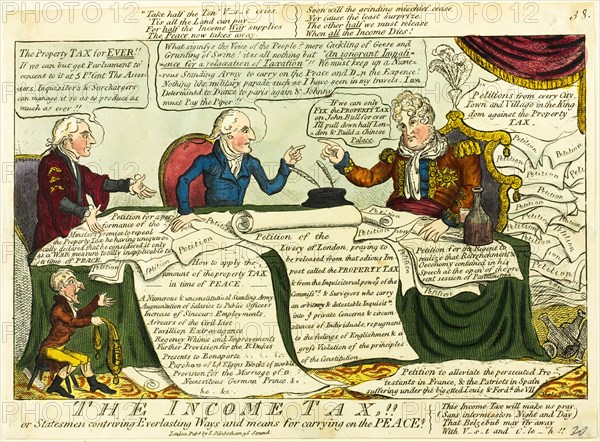 "Take half the Ten" V—s—t—t cries.
'Tis all the Land can pay
For half the Income War supplies
The Peace now takes away.
Soon will the grinding mischief crease
Nor cause the least surprize,
The other half we must release
When all the Income Dies!
38.
The Property TAX for EVER!!
If we can but get Parliament to
consent to it at 5 Pr Cent The Asses-
sors, Inquisitors & Surchargers
can manage it so as to produce as
much as ever!!
What signifys the Voice of the People? mere Cackling of Geese and
Grunting of Swine! its all nothing but "An ignorant Impati-
ence for a relaxation of Taxation"!! We must keep up a Nume-
rous Standing Army to carry on the Peace and D—n the Expence!
Nothing like military parade such as I have seen in my travels. I am
Determined to Dance to paris again & Johnny
must Pay the Piper!!
If we can only
FIX the PROPERTY TAX
on John Bull for ever
Ill pull down half Lon-
don & Build a Chinese
Palace.
Petitions from every City
Town and Village in the King
dom against the Property
TAX.
Petition
Petition
Petition
Petition
Petition
Petition
Petition
Petition for a per
formance of the
Ministers promise to repeal
the Property Tax he having unequivo
cally declared that he considered it only
as a WAR measure totally inapplicable to
a time of PEACE
How to apply the
amount of the property TAX
in time of PEACE
A Numerous & unconstitutional Standing Army
Augmentation of Salaries to Public Officers
Increase of Sinecure Employments
Arrears of the Civil List
Pavillion Extravagance
Regency Whims and Improvements
Further Provision for the R. Dukes
Presents to Bonaparte
Purchase of Ld Elgins Blocks of marble
Provision for the Marriage of a
Necessitous German Prince, &c.
&c. &c.
Petition of the
Livery of London, praying to
be released from that odious Im
post called the PROPERTY TAX
& from the Inquisitorial power of the
Commissrs & Surveyors who carry
an arbitrary & detestable Inquisitn
into ye private Concerns & circum
stances of Individuals, repugnant
to the feelings of Englishmen & a
gross Violation of the principles
of the Constitution
Petition for the Regent to
realize that Retrenchment &
Oeconomy contained in his
Speech at the open'g of the pre
sent session of Parliament
Petition to alleviate the persecuted Pro
testants in France, & the Patriots in Spain
suffering under the bigotted Louis & Ferdd the VII
THE INCOME TAX,!!
or Statesmen contriving Everlasting Ways and means for carrying on the PEACE!
This Income Five will make us pray
(Sans intermission Night and Day)
That Belzebub may fly away
With V—s—t and C—tle—h!!
20